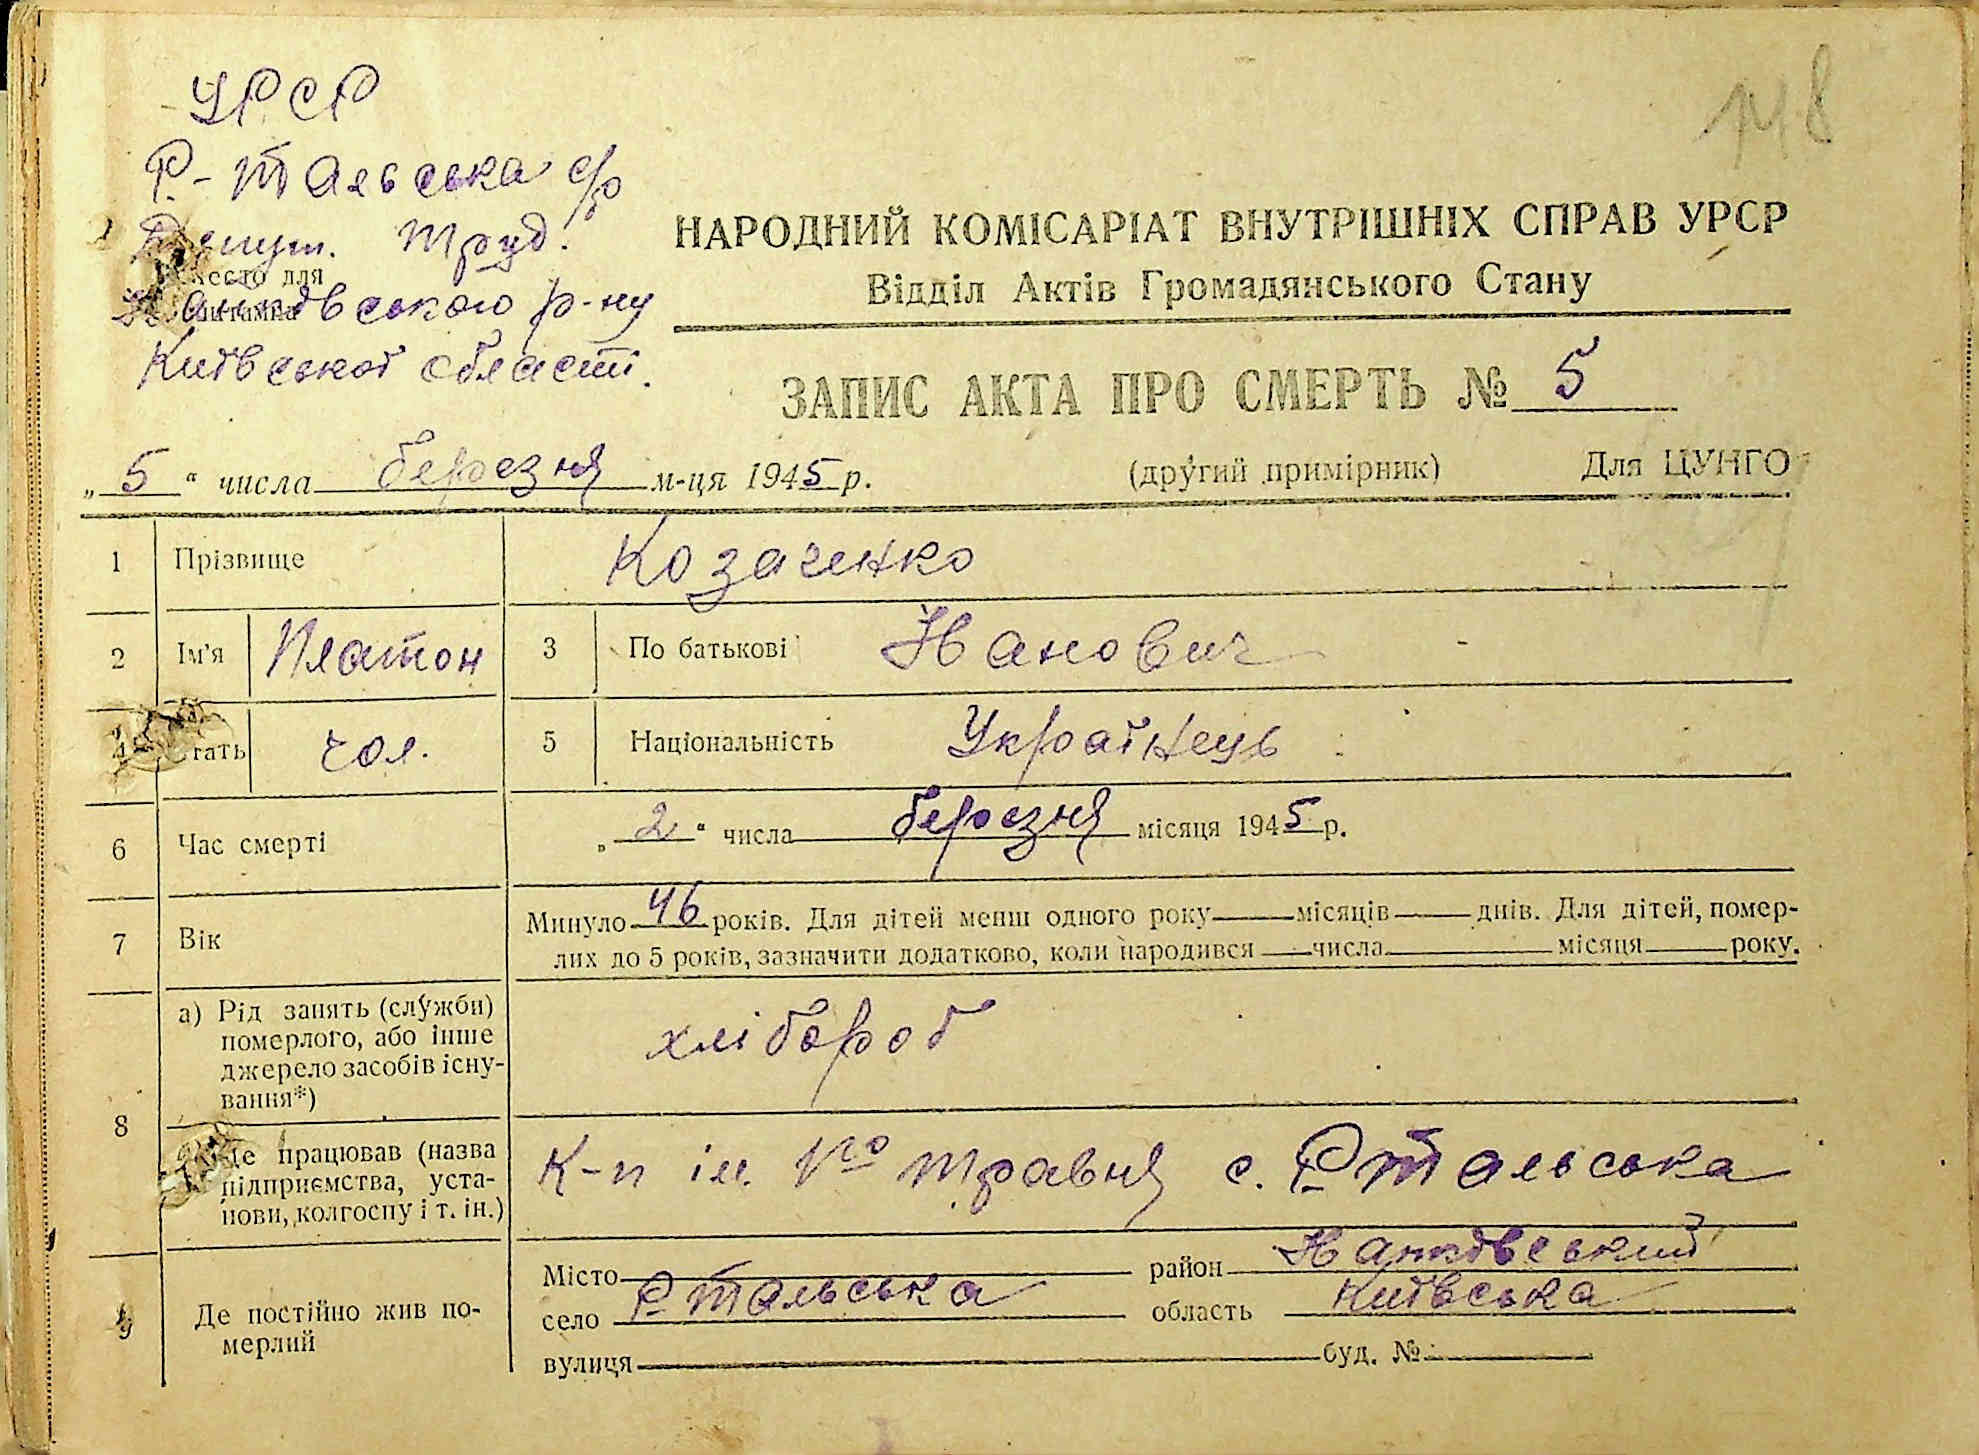 148
УРСР
Р-Тальська с/р
Депут. Труд.
Місто для
штампа
Іванківського р-ну
Київської області.
НАРОДНИЙ КОМІСАРІАТ ВНУТРІШНІХ СПРАВ УРСР
Відділ Актів Громадянського Стану
ЗАПИС АКТА ПРО СМЕРТЬ № 5
„5“ числа березня м-ця 1945 р. (другий примірник) Для ЦУНГО
1 Прізвище Козаченко
2 Ім'я Платон 3 По батькові Іванович
4 Стать чол. 5 Національність Українець
6 Час смерті „2“ числа березня місяця 1945 р.
7 Вік Минуло 46 років. Для дітей менш одного року — місяців — днів. Для дітей, помер-
лих до 5 років, зазначити додатково, коли народився — числа — місяця — року.
8 а) Рід занять (служби)
померлого, або інше
джерело засобів існу-
вання*)
хлібороб
Де працював (назва
підприємства, уста-
нови, колгоспу і т. ін.)
К-п ім. 1го травня с. Р-Тальська
9 Де постійно жив по-
мерлий
Місто район Іванківський
село Р-Тальська область Київська
вулиця буд. №